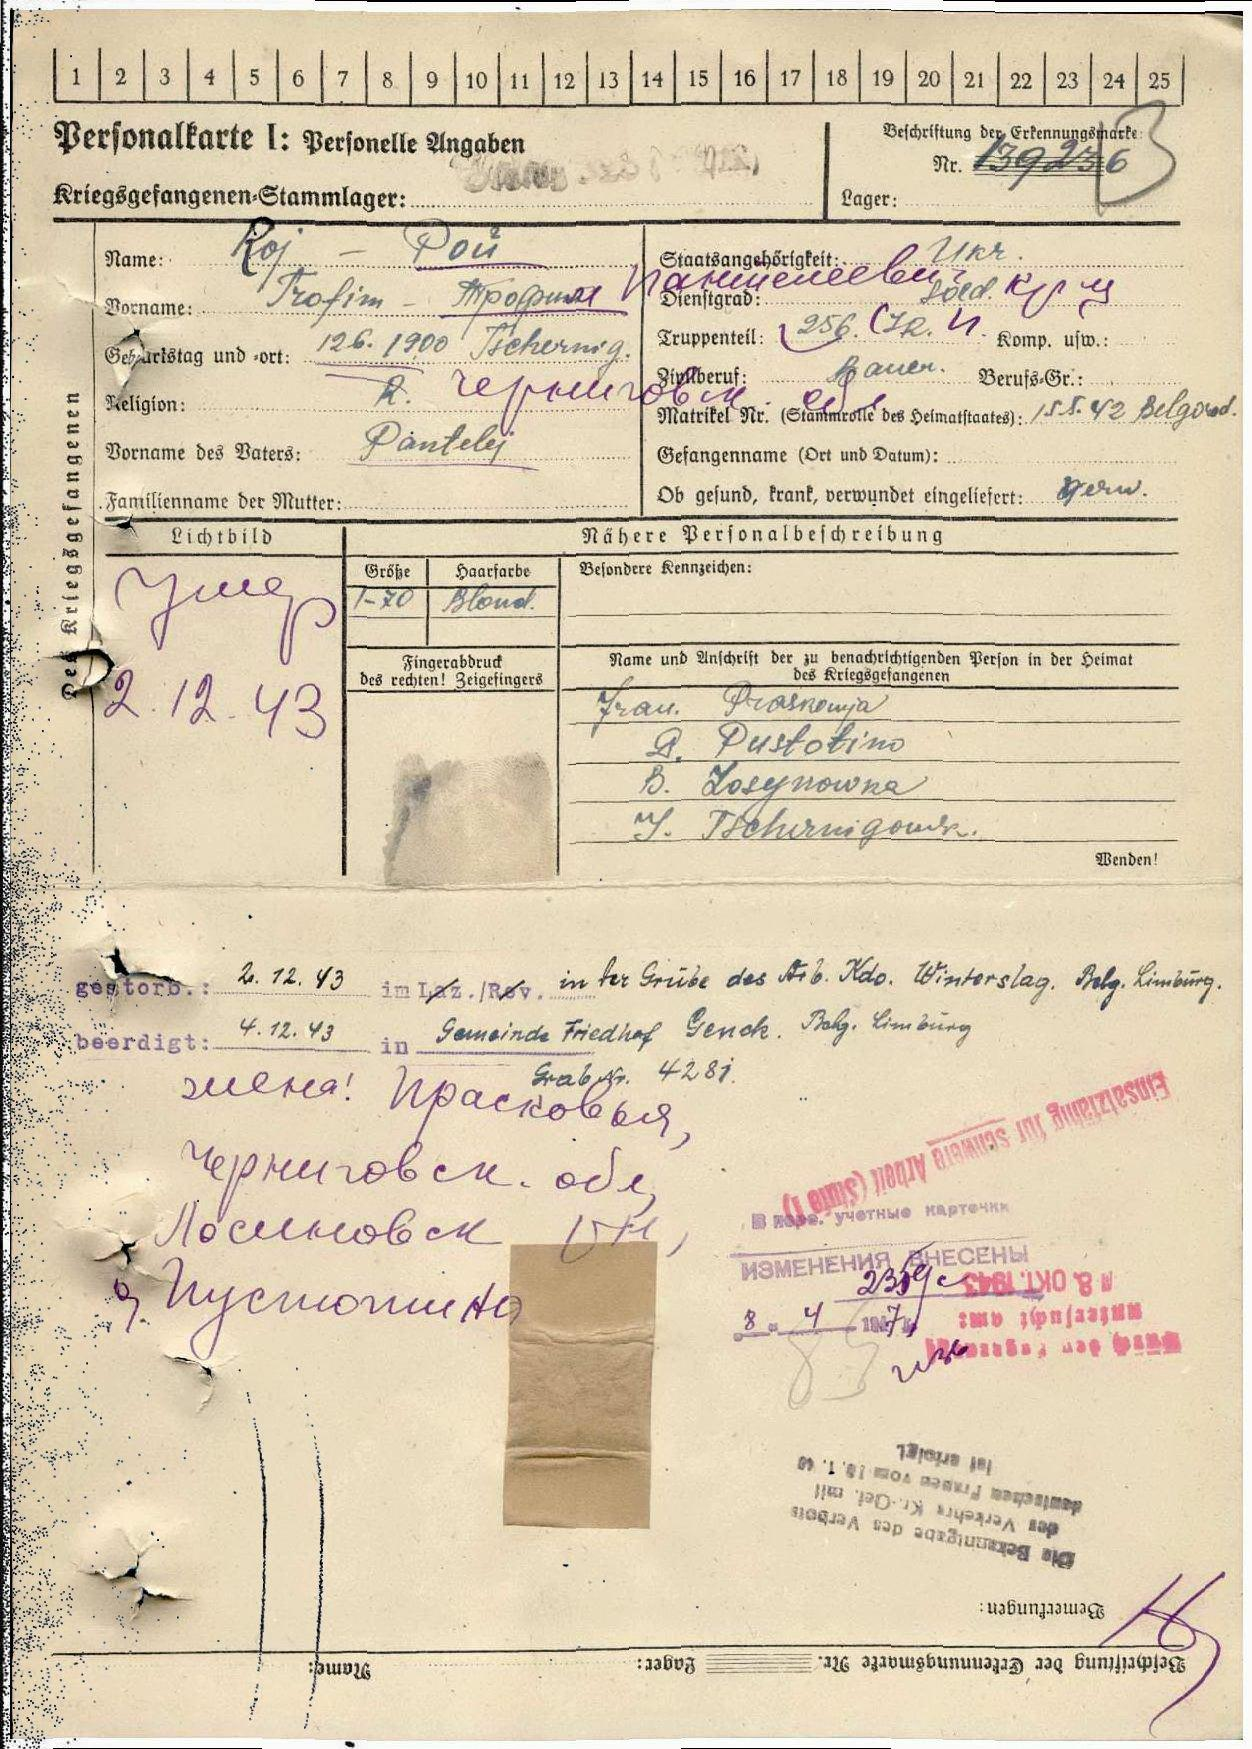 1 2 3 4 5 6 7 8 9 10 11 12 13 14 15 16 17 18 19 20 21 22 23 24 25
Personalkarte I: Personelle Angaben
Beschriftung der Erkennungsmarke:
Nr. 139236
Kriegsgefangenen-Stammlager:
Lager:
Des Kriegsgefangenen
Name: Roj – Рой
Staatsangehörigkeit: Ukr.
Vorname: Trofim – Трофим Пантелеевич
Dienstgrad: Sold. кр-ц
Geburtstag und -ort: 12.6.1900 Tschernig.
Truppenteil: 256. I.R. Komp. usw.:
Черниговск. обл
Zivilberuf: Bauer. Berufs-Gr.:
Religion: R.
Matrikel Nr. (Stammrolle des Heimatstaates): 15.5.42 Belgorod.
Vorname des Vaters: Pantelej
Gefangenname (Ort und Datum):
Familienname der Mutter:
Ob gesund, krank, verwundet eingeliefert:
Lichtbild
Nähere Personalbeschreibung
Größe Haarfarbe
Besondere Kennzeichen:
1-70 Blond.
Умер
2.12.43
Fingerabdruck
des rechten! Zeigefingers
Name und Anschrift der zu benachrichtigenden Person in der Heimat
des Kriegsgefangenen
Frau. Praskowja
D. Pustotino
B. Losynowka
Tschernigowsk.
Wenden!
gestorb.: 2.12.43 im Laz./Rev. in der Grube des Arb. Kdo. Winterslag. Belg. Limburg.
beerdigt: 4.12.43 in Gemeinde Friedhof Genck. Belg. Limburg
Grab Nr. 4281.
жена! Прасковья,
Черниговск. обл,
Лосиновск р-н,
д. Пустотино
Einsatzfähig für schwere Arbeit (Stufe 1)
учетные карточки
ИЗМЕНЕНИЯ ВНЕСЕНЫ
8. 4
8. OKT. 1943
untersucht am:
Die Bekanntgabe des Verbots
des Verkehrs Kr.-Gef. mit
deutschen Frauen vom
ist erfolgt.
Bemerkungen:
Beschriftung der Erkennungsmarke Nr. Lager: Name: